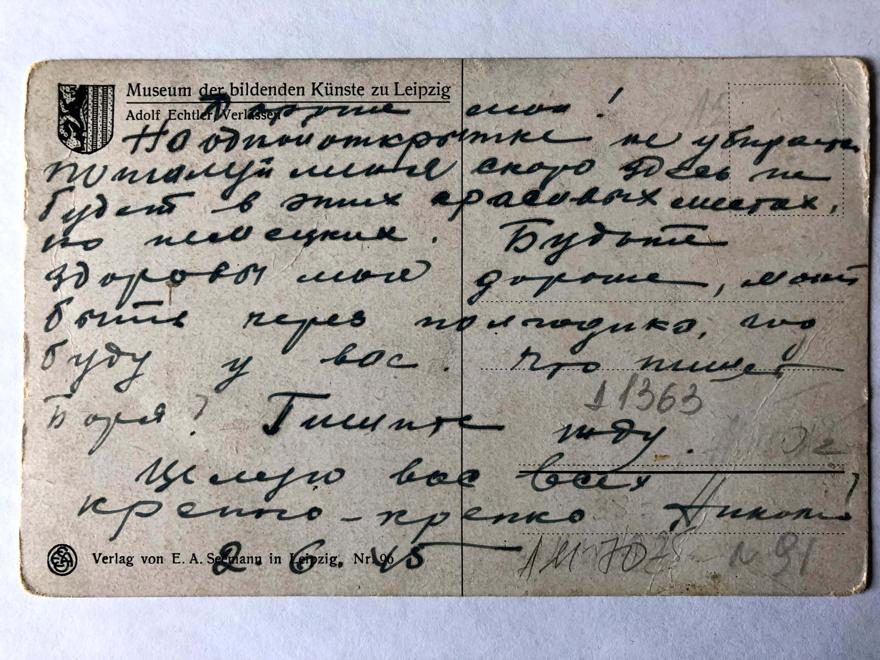 Museum der bildenden Künste zu Leipzig
Adolf Echtler Verlassen
Дорогие мои!
На одной открытке не
пожалуй меня скоро здесь не
будет в этих красивых местах,
но немецких. Будьте
здоровы мои дорогие, может
быть через полгодика, что
буду у вас. Что пишет
Боря? Пишите жду.
1363
Целую вас всех
крепко-крепко Николай
Verlag von E. A. Seemann in Leipzig. Nr. 96
2 6. 45
N 91